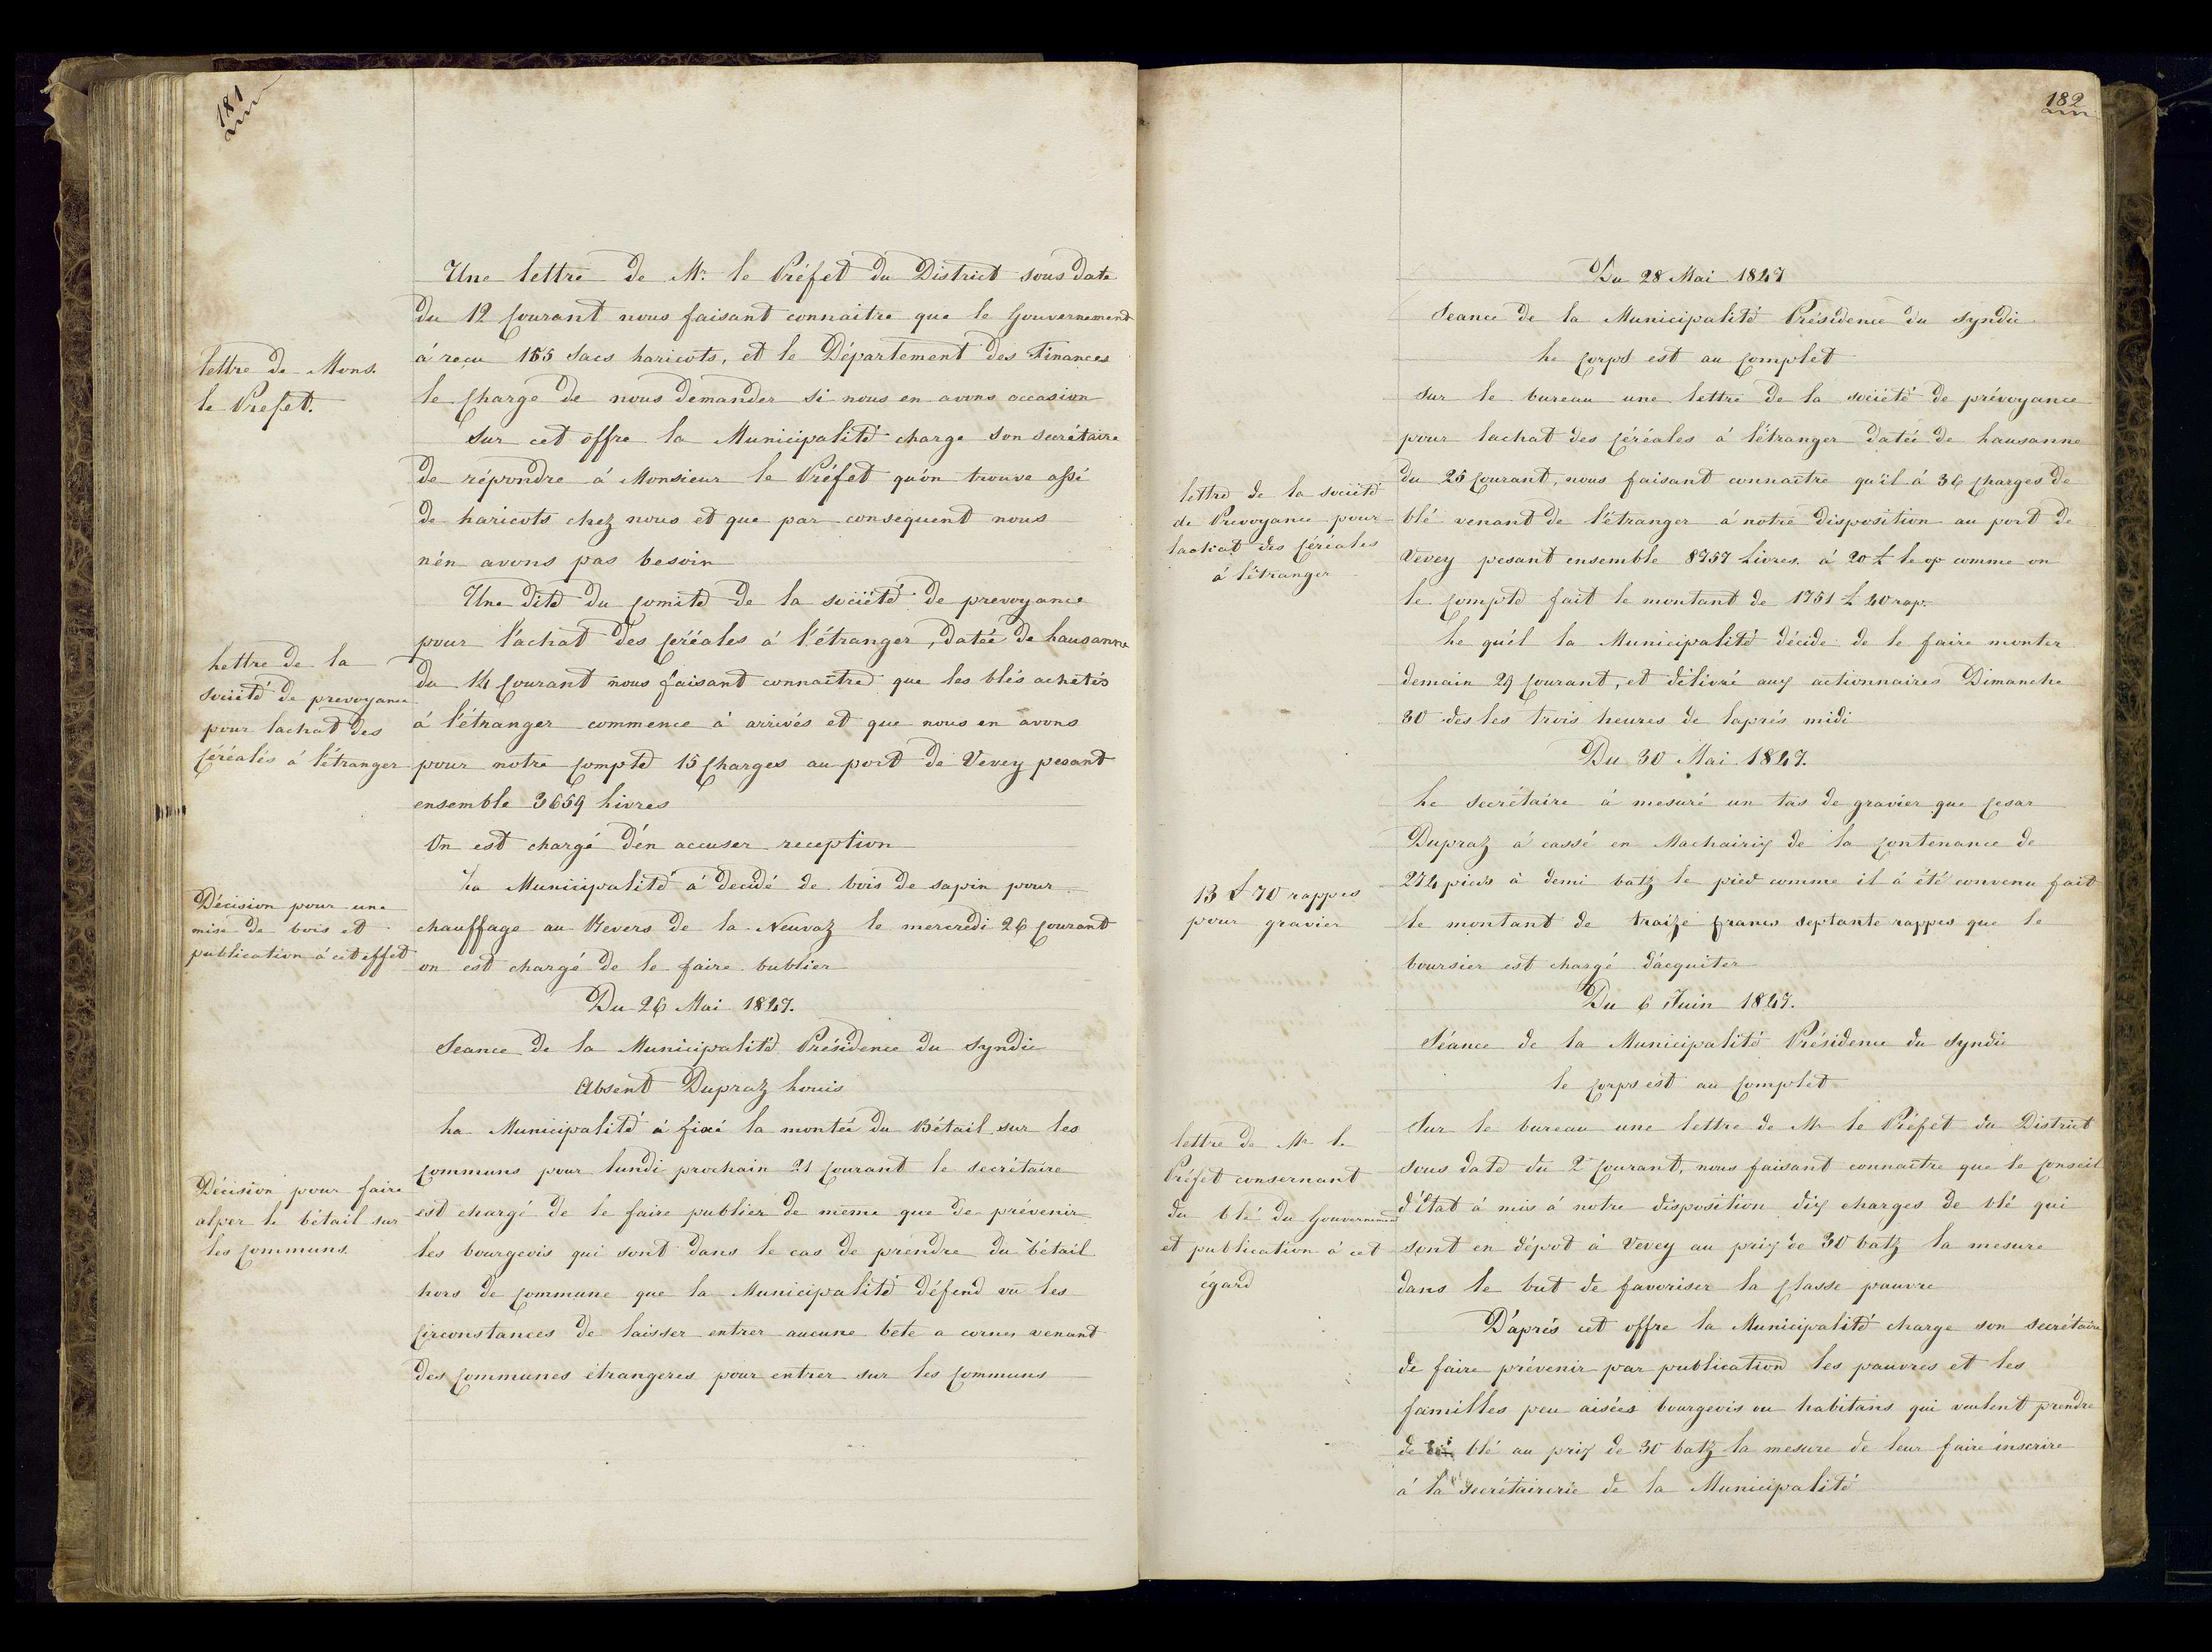 181
Une lettre de Mr. le Préfet du District sous date
du 12 Courant nous faisant connaitre que le Gouvernement
lettre de Mons.
le Prefet.
á reçu 155 Sacs haricots, et le Département des Finances
le Charge de nous demander si nous en avons occasion
Sur cet offre la Municipalité charge son secrétaire
de répondre á Monsieur le Préfet qu'on trouve assé
de haricots chez nous et que par consequent nous
n'én avons pas besoin
Une dite du Comité de la société de prevoyance
pour l'achat des Céréales á l'étranger, datée de Lausanne
Lettre de la
société de prevoyance
pour lachat des
Céréales á l'étranger
du 14 Courant nous faisant connaître que les blés achetés
á l'étranger commence á arrivés et que nous en avons
pour notre Compte 15 Charges au port de Vevey pesant
ensemble 3659 Livres
On est chargé d'én accuser reception
Décision pour une
mise de bois et
publication á cet effet
La Municipalité á decidé de bois de sapin pour
chauffage au Revers de la Neuvaz le mercredi 26 Courant
on est chargé de le faire bublier
Du 26 Mai 1847.
Seance de la Municipalité Présidence du Syndic
Absent Dupraz Louis
La Municipalité á fixé la montée du Bétail sur les
Décision pour faire
alper le bétail sur
les Communs.
Communs pour lundi prochain 31 Courant le secrétaire
est chargé de le faire publier de même que de prévenir
les bourgeois qui sont dans le cas de prendre du bétail
hors de Commune que la Municipalité défend vû les
Circonstances de laisser entrer aucune bete a cornes venant
des Communes étrangeres pour entrer sur les Communs
182
Du 28 Mai 1847
Seance de la Municipalité Présidence du Syndic
Le Corps est au Complet
Sur le bureau une lettre de la société de prévoyance
pour lachat des Céréales á l'étranger datée de Lausanne
lettre de la société
de Prevoyance pour
lachat des Céréales
á l'étranger
du 25 Courant, nous faisant connaître qu'il á 36 Charges de
blé venant de l'étranger á notre disposition au port de
Vevey pesant ensemble 8757 Livres á 20 £ le % comme on
le Compte fait le montant de 1751 £ 40 rap.
Le qu'él la Municipalité décide de le faire monter
demain 29 Courant, et délivré aux actionnaires Dimanche
30 des les trois heures de laprés midi
Du 30 Mai 1847.
Le secrétaire á mesuré un tas de gravier que Cesar
Dupraz á cassé en Machairix de la Contenance de
13 £ 70 rappes
pour gravier
274 pieds á demi batz le pied comme il á été convenu fait
le montant de traize francs septante rappes que le
boursier est chargé d'acquiter
Du 6 Juin 1847.
Séance de la Municipalité Présidence du Syndic
le Corps est au Complet
lettre de Mr le
Préfet consernant
du blé du Gouvernement
et publication á cet
égard
Sur le bureau une lettre de Mr le Préfet du District
sous date du 2 Courant, nous faisant connaître que le Conseil
d'État á mis á notre disposition dix charges de blé qui
sont en dépot á Vevey au prix de 30 batz la mesure
dans le but de favoriser la Classe pauvre
D'aprés cet offre la Municipalité charge son secrétaire
de faire prévenir par publication les pauvres et les
familles peu aisées bourgeois ou habitans qui veulent prendre
de blé au prix de 30 batz la mesure de leur faire inscrire
á la secrétairerie de la Municipalité